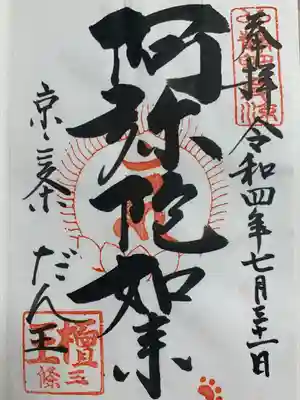 奉拝
令和四年七月三十一日
阿弥陀如来
京三条
だん王
檀王
三條